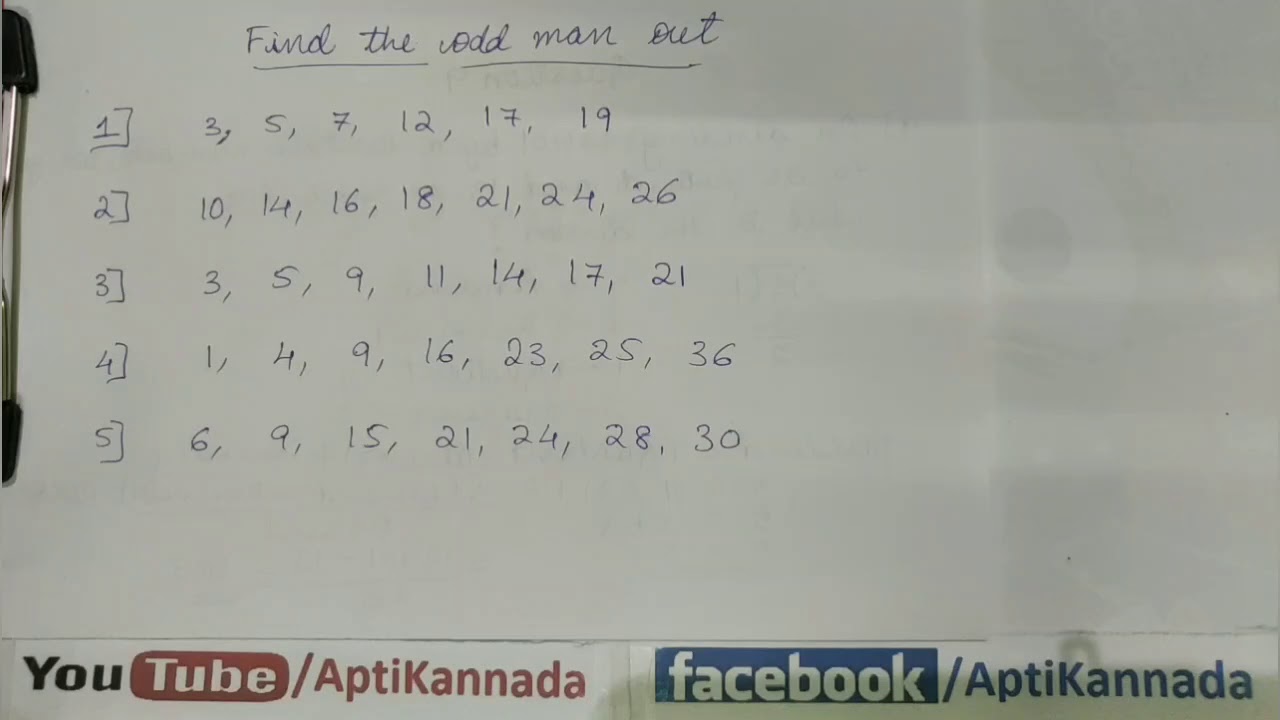 Find the odd man out
1] 3, 5, 7, 12, 17, 19
2] 10, 14, 16, 18, 21, 24, 26
3] 3, 5, 9, 11, 14, 17, 21
4] 1, 4, 9, 16, 23, 25, 36
5] 6, 9, 15, 21, 24, 28, 30
YouTube/AptiKannada facebook/AptiKannada